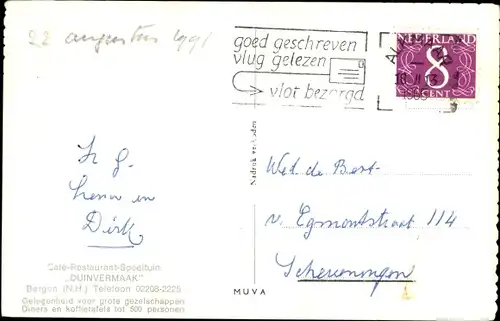 22 augustus 1991
goed geschreven
vlug gelezen
vlot bezorgd
NEDERLAND
8
CENT
1965
Nadruk verboden
H g.
en
Dirk
Wed de Best-
v. Egmontstraat 114
Scheveningen
Café-Restaurant-Speeltuin
„DUINVERMAAK"
Bergen (N.H.) Telefoon 02208-2225
Gelegenheid voor grote gezelschappen
Diners en koffietafels tot 500 personen
MUVA